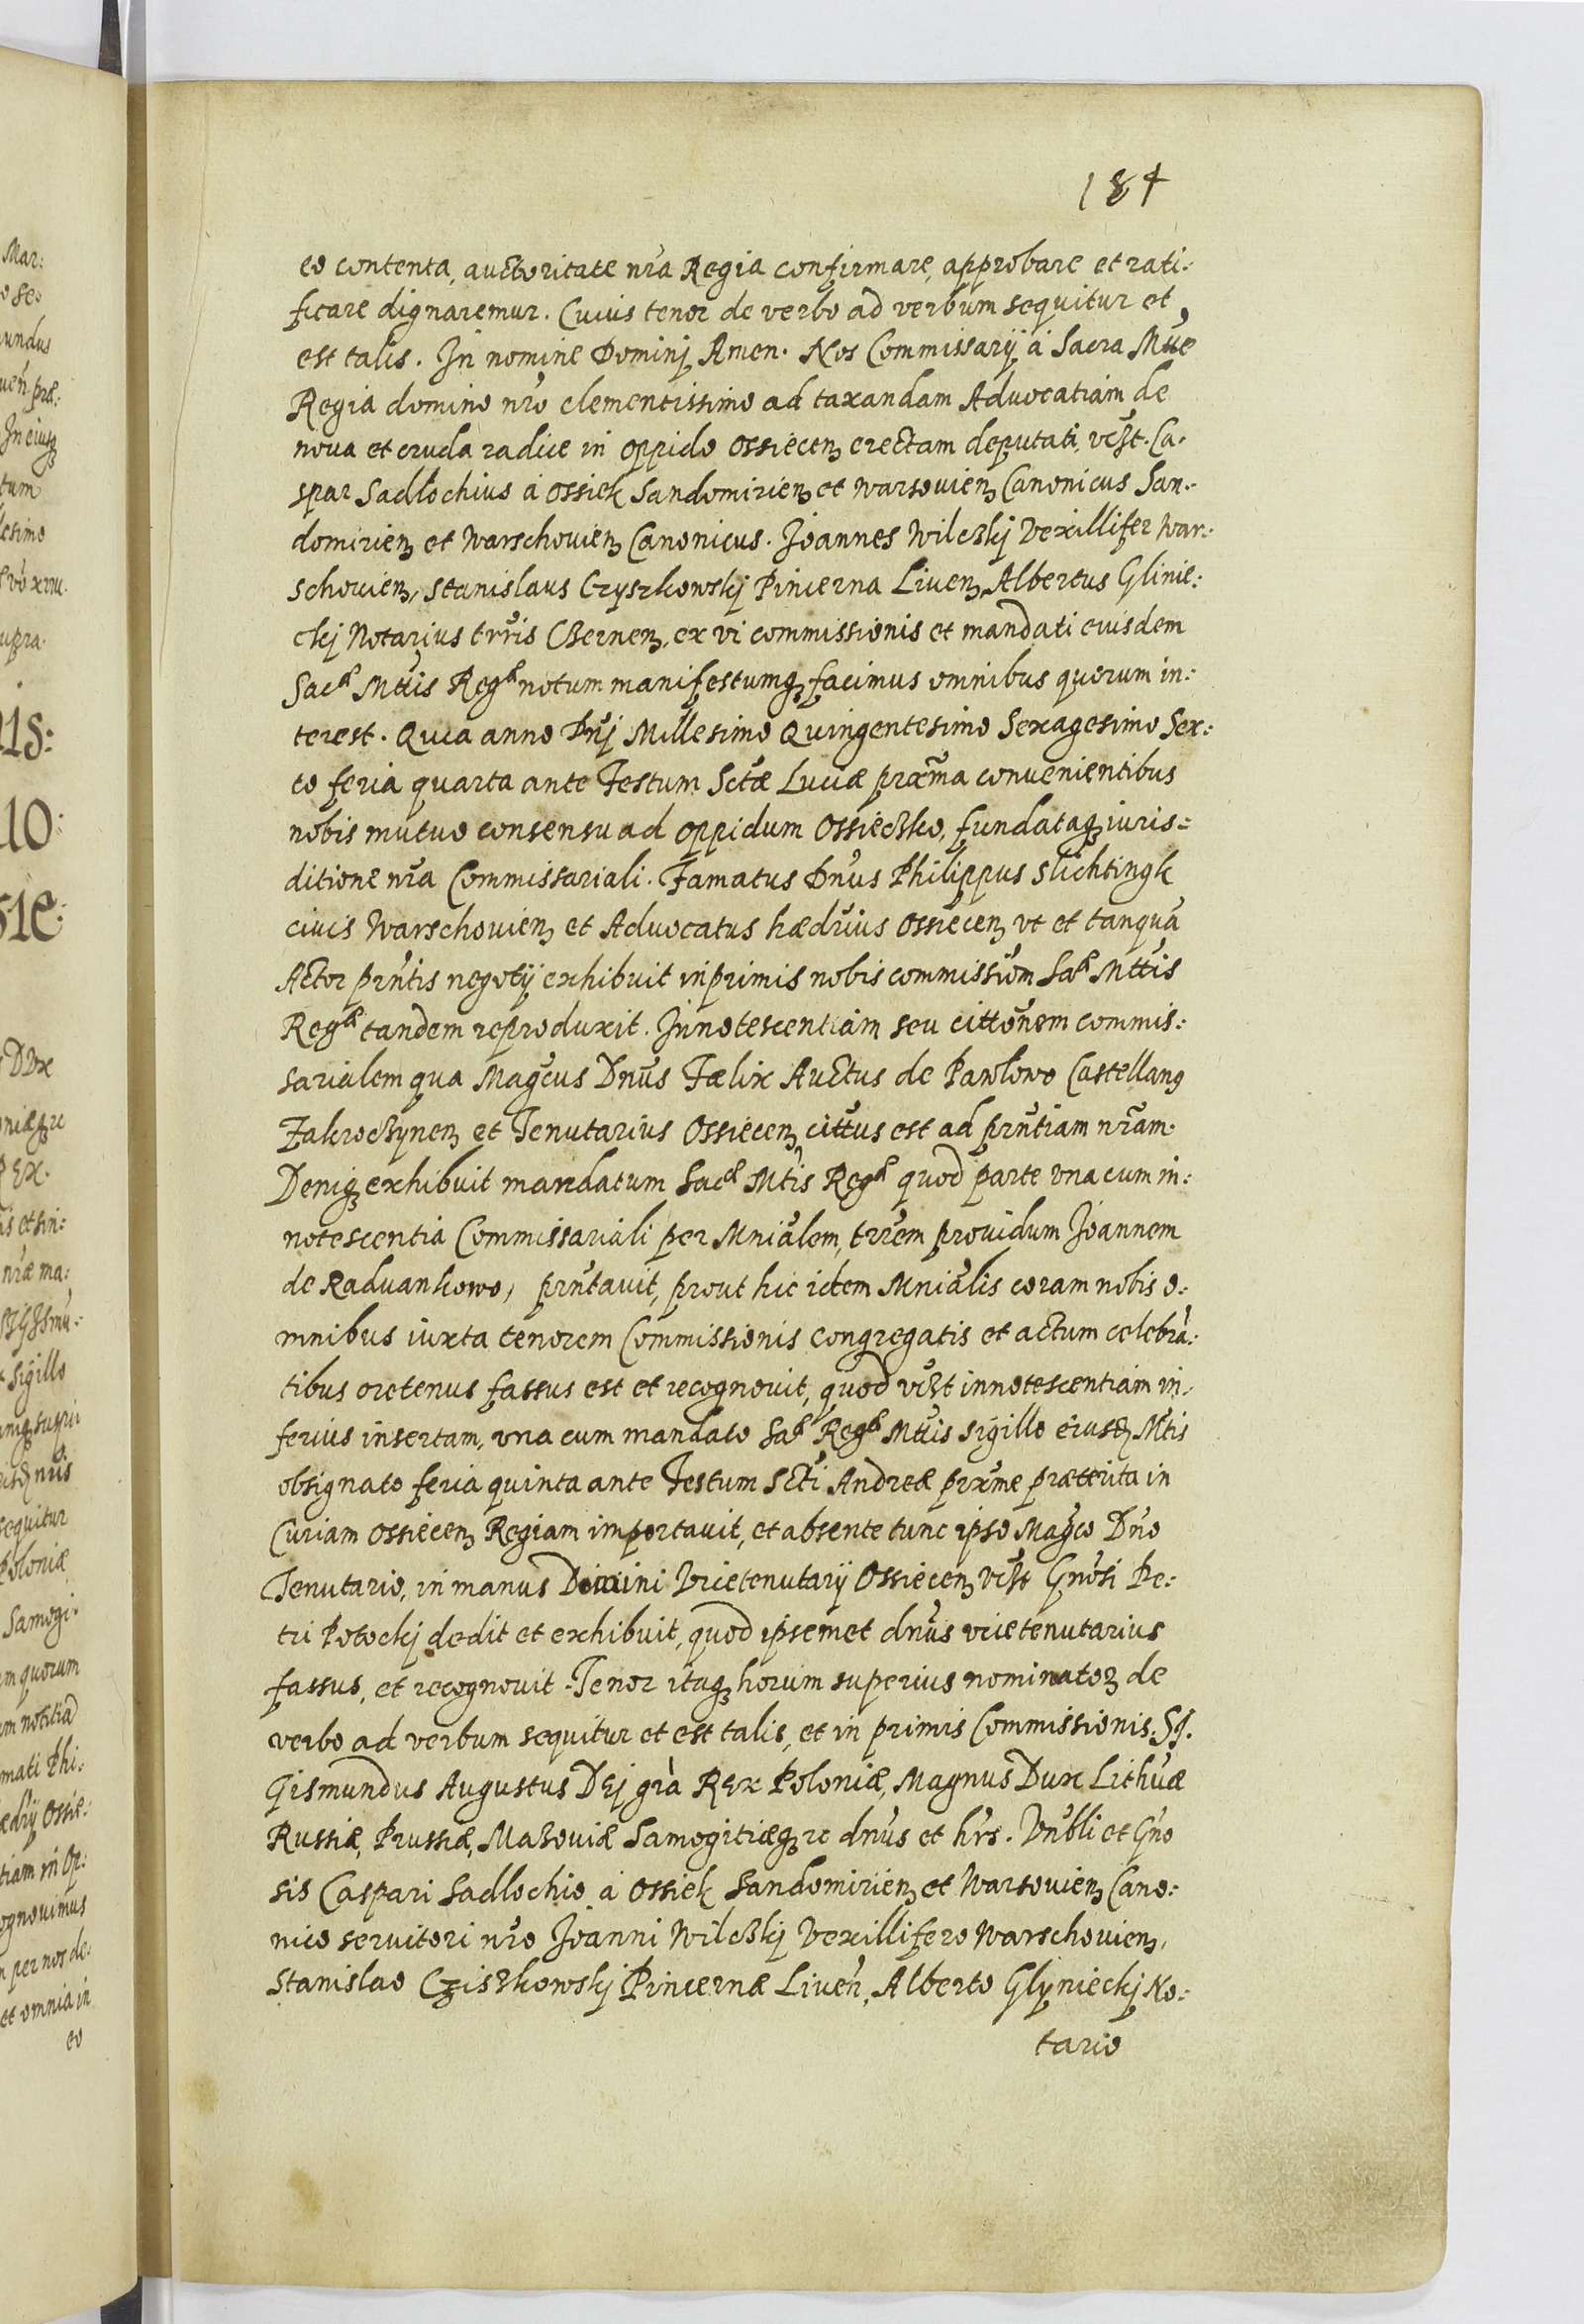 184
eo contenta, auctoritate nra Regia confirmare, approbare et rati:
ficare dignaremur. Cuius tenor de verbo ad verbum sequitur et
est talis. In nomine Dominj Amen. Nos Commissarij á Sacra Mtte
Regia domino nro clementissimo ad taxandam Aduocatiam de
noua et cruda radice in oppido ossiecen erectam deputati, vczt. Ca-
spar Sadlochius á ossiek Sandomirien et warsouien Canonicus San-
domirien et Warschouien Canonicus. Joannes Wilczkj Vexillifer War:
schouien, Stanislaus Czyszkowskj Pincerna Liuen, Albertus Glinie:
ckj Notarius trris Czernen, ex vi commissionis et mandati eiusdem
Sacæ Mttis Regæ notum manifestumq facimus omnibus quorum in:
terest. Quia anno Dnj Millesimo Quingentesimo Sexagesimo Sex:
to feria quarta ante Festum Sctæ Luciæ proxma conuenientibus
nobis mutuo consensu ad oppidum Ossieczko, fundataq iuris=
ditione nra Commissariali. Famatus Dnus Philippus Slichtingk
ciuis Warschouien et Aduocatus hædrius Ossiecen vt et tanqua
Actor prntis negotij exhibuit inprimis nobis commissiom Saæ Mttis
Regæ tandem reproduxit. Innotescentiam seu cittonem commis:
sarialem qua Magcus Dnus Fælix Auctus de Pawlowo Castellang
Zakroczynen et Tenutarius Ossiecen cittus est ad prntiam nram.
Deniq exhibuit mandatum Sacæ Mtis Regæ quod parte vna cum in:
notescentia Commissariali per Mnialem, trrem prouidum Joannem
de Raduankowo, prntauit, prout hic idem Mnialis coram nobis o:
mnibus iuxta tenorem Commissionis congregatis et actum celebra:
tibus oretenus fassus est et recognouit, quod vczt innotescentiam in-
ferius insertam, vna cum mandato Saæ Regæ Mttis sigillo eiusd Mtis
obsignato feria quinta ante Festum Scti Andreæ prxme præterita in
Curiam ossiecen Regiam importauit, et absente tunc ipso Magco Dno
Tenutario, in manus Domini Vicetenutarij Ossiecen vczt Gnosi Pe:
tri Potockj dedit et exhibuit, quod ipsemet dnus vicetenutarius
fassus, et recognouit. Tenor itaq horum superius nominatoz de
verbo ad verbum sequitur et est talis, et in primis Commissionis. Si.
Gismundus Augustus Dej gra Rex Poloniæ, Magnus Dux Lithuæ
Russiæ, Prussiæ, Mazouiæ Samogitiæq zc dnus et hrs. Vnbli et Gno
sis Caspari Sadlochio á Ossiek Sandomirien et Warsouien Cano:
nico seruitori nro Joanni Wilczkj Vexillifero Warschouien,
Stanislao Cziszkowskj Pincernæ Liuen, Alberto Glynieckj No:
tario